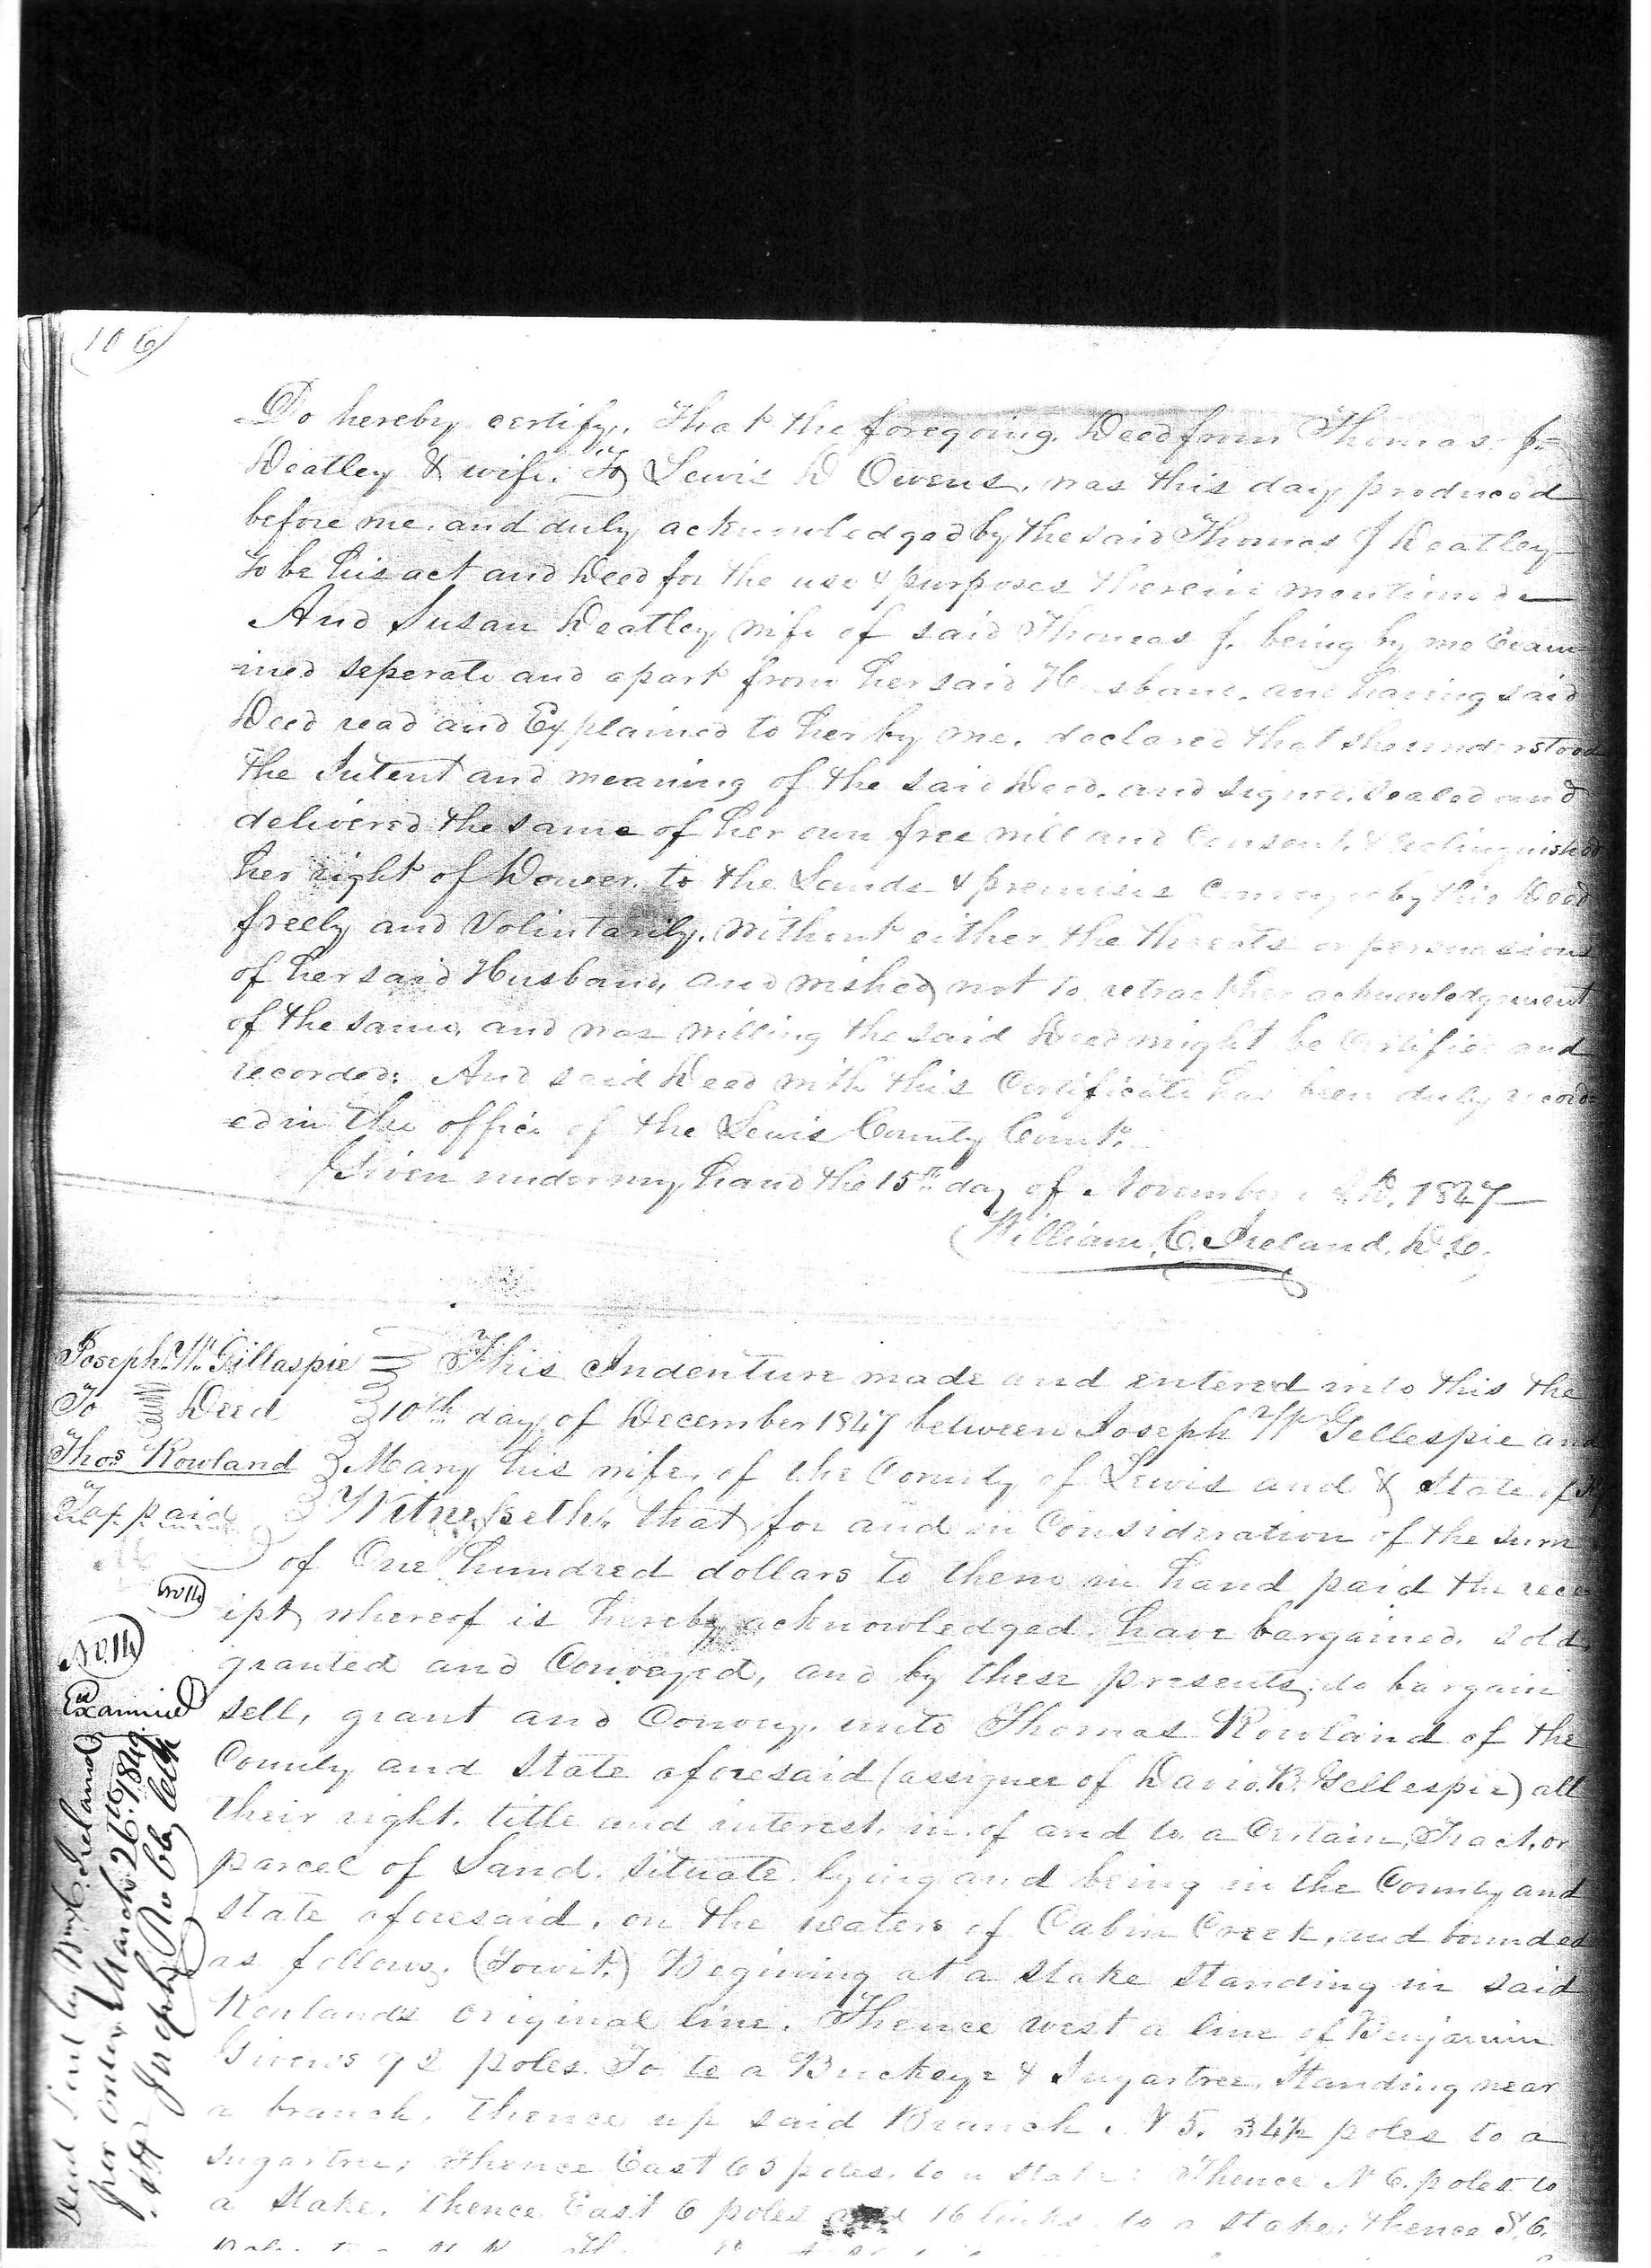 106
Do hereby certify, That the foregoing Deed from Thomas J.
Deatley & wife. To Lewis D Owens, was this day produced
before me, and duly acknowledged by the said Thomas J Deatley
To be his act and Deed for the use & purposes therein mentioned
And Susan Deatley wife of said Thomas J. being by me Exam=
=ined seperate and apart from her said Husband, and having said
Deed read and Explained to her by me, declared that she understood
the Intent and meaning of the said Deed, and signed, sealed and
delivered the same of her own free will and Consent, & relinquished
her right of Dower, to the Lands & premises Conveyed by this Deed
freely and Volintarily, without either the threats or persuasions
of her said Husband, and wished not to retract her acknowledgement
of the same, and was willing the said Deed might be Certified and
recorded; And said Deed with this Certificate has been duly record=
=ed in the office of the Lewis County Court.
Given under my hand the 15th day of November A.D. 1847
William C. Ireland. D.C.
Joseph W. Gillaspie
To Deed
Thos Rowland
Tax paid
This Indenture made and entered into this the
10th day of December 1847 between Joseph W Gellespie and
Mary his wife, of the County of Lewis and & State of Ky
Witnesseth, that for and in Consideration of the sum
of One hundred dollars to them in hand paid the rece
ipt whereof is hereby acknowledged, have bargained, sold,
granted and Conveyed, and by these presents, do bargain
sell, grant and Convey, unto Thomas Rowland of the
County and State aforesaid (assignee of David. B. Gellespie) all
their right, title and interest, in, of and to, a Certain, Tract, or
parcel of Land, Situate, lying and being in the County and
State aforesaid, on the waters of Cabin Creek, and bounded
as follows, (Towit.) Begining at a Stake Standing in said
Rowlands original line, Thence west a line of Benjamin
Givens 92 poles To to a Buckeye & Sugartree, Standing near
a branch, Thence up said Branch, N 5. 34½ poles to a
Sugartree; Thence East 63 poles, to a Stake; Thence N 6. poles to
a Stake, Thence East 6 poles 16 links to a Stake; thence S, 6.
Examined
Deed Sent by Wm C. Ireland
per order March 26th 1849
Joseph Robb